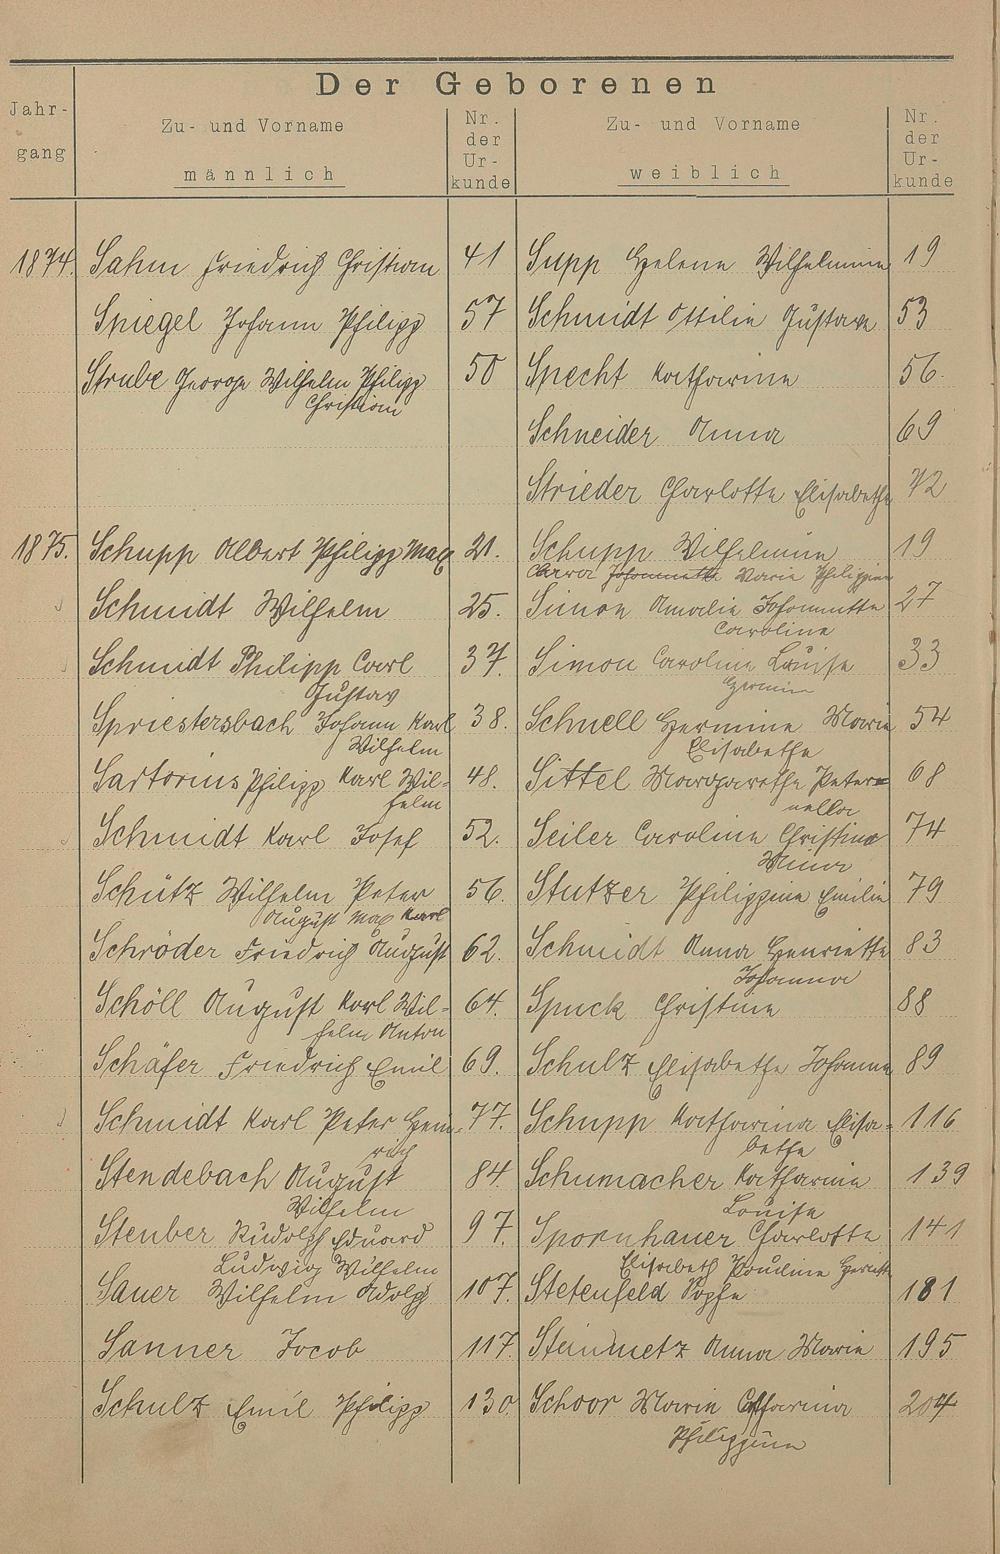 Der Geborenen
Jahr-
gang
Zu- und Vorname
männlich
Nr.
der
Ur-
kunde
Zu- und Vorname
weiblich
Nr.
der
Ur-
kunde
1874. Sahm Friedrich Christian 41 Supp Helene Wilhelmine 19
Spiegel Johann Philipp 57 Schmidt Ottilie Gustave 53
Strube George Wilhelm Philipp 50 Specht Katharine 56.
Christian
Schneider Anna 69
Strieder Charlotte Elisabethe 72
1875. Schupp Albert Philipp Max 21. Schupp Wilhelmine 19
Clara Johannette Marie Philippine
Schmidt Wilhelm 25. Simon Amalie Johannette 27
Caroline
Schmidt Philipp Carl 37. Simon Caroline Louise 33
Gustav Hermin
Spriestersbach Johann Karl 38. Schnell Hermine Marie 54
Wilhelm Elisabethe
Sartorius Philipp Karl Wil- 48. Sittel Margarethe Peter= 68
helm nella
Schmidt Karl Josef 52. Seiler Caroline Christine 74
Minna
Schütz Wilhelm Peter 56. Stutzer Philippine Emilie 79
August Max Karl
Schröder Friedrich August 62. Schmidt Anna Henriette 83
Johanna
Schöll August Karl Wil- 64. Spuck Christine 88
helm Anton
Schäfer Friedrich Emil 69. Schulz Elisabethe Johanna 89
Schmidt Karl Peter Hein- 77. Schupp Katharina Elisa- 116
rich bethe
Stendebach August 84. Schumacher Katharine 139
Wilhelm Louise
Steuber Rudolph Eduard 97. Spornhauer Charlotte 141
Ludwig Wilhelm Elisabeth Pauline
Sauer Wilhelm Adolph 107. Stetenfeld Sophie 181
Sanner Jacob 117. Steinmetz Anna Marie 195
Schulz Emil Philipp 130. Schoor Marie Catharina 204
Philippine